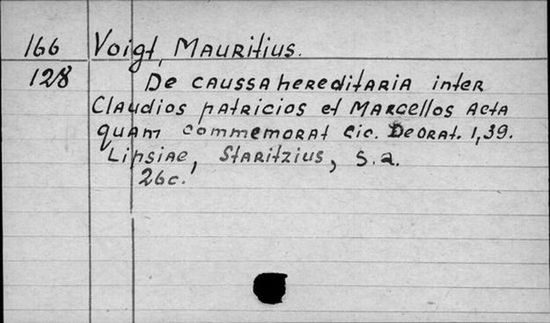 166 Voigt, Mauritius.
128 De caussa hereditaria inter
Claudios patricios et Marcellos acta
quam commemorat Cic. De orat. 1,39.
Lipsiae, Staritzius, s.a.
26c.